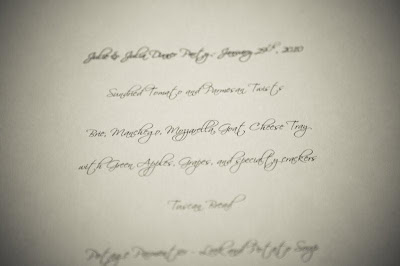 Julie & Julia Dinner Party: January 29th, 2010
Sundried Tomato and Parmesan Twists
Brie, Manchego, Mozzarella, Goat Cheese Tray,
with Green Apples, Grapes, and specialty crackers
Tuscan Bread
Potage Parmentier - Leek and Potato Soup